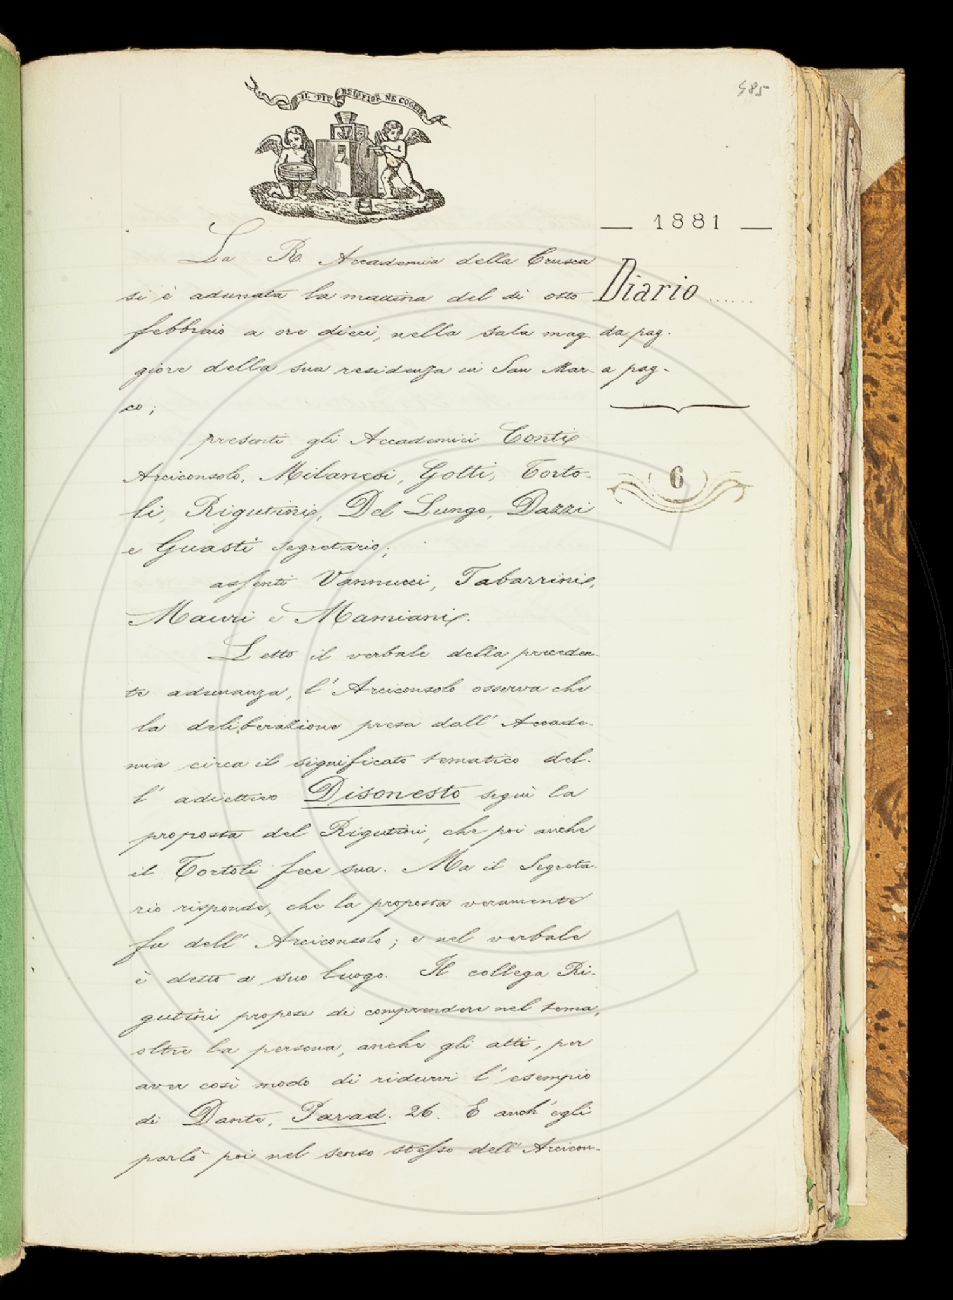 IL PIÙ BEL FIOR NE COGLIE
485
— 1881 —
Diario ......
da pag.
a pag.
6
La R. Accademia della Crusca
si è adunata la mattina del dì otto
febbraio a ore dieci, nella sala mag
giore della sua residenza in San Mar-
co;
presenti gli Accademici Conti
Arciconsolo, Milanesi, Gotti, Torto-
li, Rigutini, Del Lungo, Dazzi
e Guasti segretario;
assenti Vannucci, Tabarrini,
Mauri e Mamiani.
Letto il verbale della preceden
te adunanza, l'Arciconsolo osserva che
la deliberazione presa dall'Accade-
mia circa il significato tematico del-
l'adiettivo Disonesto seguì la
proposta del Rigutini, che poi anche
il Tortoli fece sua. Ma il Segreta-
rio risponde, che la proposta veramente
fu dell'Arciconsolo; e nel verbale
è detto a suo luogo. Il collega Ri-
gutini propose di comprendere nel tema,
oltre la persona, anche gli atti, per
aver così modo di ridurvi l'esempio
di Dante, Parad. 26. E anch'egli
parlò poi nel senso stesso dell'Arcicon-